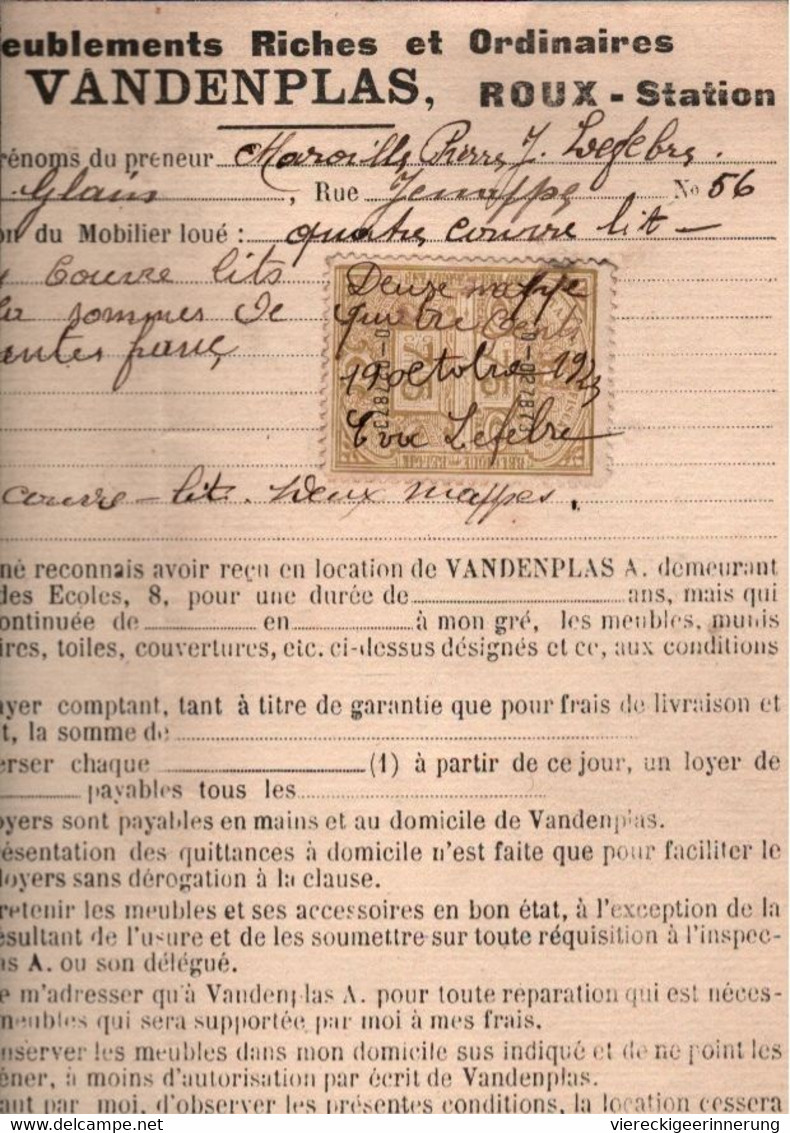 eublements Riches et Ordinaires
VANDENPLAS, ROUX - Station
rénoms du preneur Maroille Pierre J. Lefebre.
Glain, Rue Jemappe No 56
on du Mobilier loué : quatre couvre lit —
couvre lits
la sommes de
antes franc
Deuse nappe
quatre cents
19 octobre 19
Lefebre
BELGIQUE BELGIE
couvre-lit. Deux nappes.
né reconnais avoir reçu en location de VANDENPLAS A. demeurant
des Ecoles, 8, pour une durée de ans, mais qui
ontinuée de en à mon gré, les meubles, munis
ires, toiles, couvertures, etc. ci-dessus désignés et ce, aux conditions
ayer comptant, tant à titre de garantie que pour frais de livraison et
t, la somme de
erser chaque (1) à partir de ce jour, un loyer de
payables tous les
oyers sont payables en mains et au domicile de Vandenplas.
résentation des quittances à domicile n'est faite que pour faciliter le
loyers sans dérogation à la clause.
retenir les meubles et ses accessoires en bon état, à l'exception de la
ésultant de l'usure et de les soumettre sur toute réquisition à l'inspec-
as A. ou son délégué.
e m'adresser qu'à Vandenplas A. pour toute reparation qui est néces-
meubles qui sera supportée par moi à mes frais.
nserver les meubles dans mon domicile sus indiqué et de ne point les
ener, à moins d'autorisation par écrit de Vandenplas.
aut par moi, d'observer les présentes conditions, la location cessera
viereckigeerinnerung